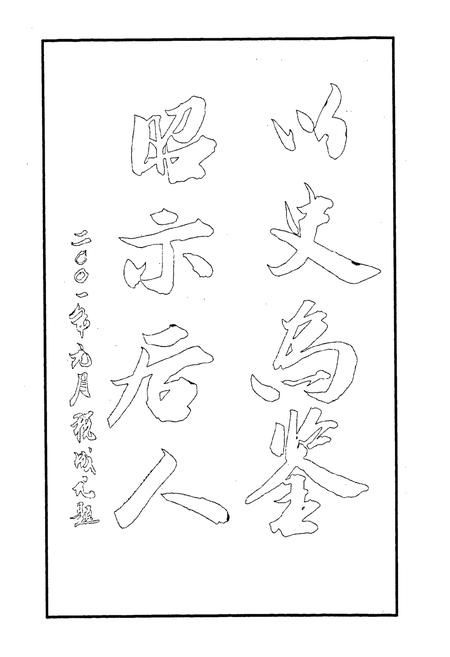 以史为鉴
昭示后人
二〇〇一年九月 成元题